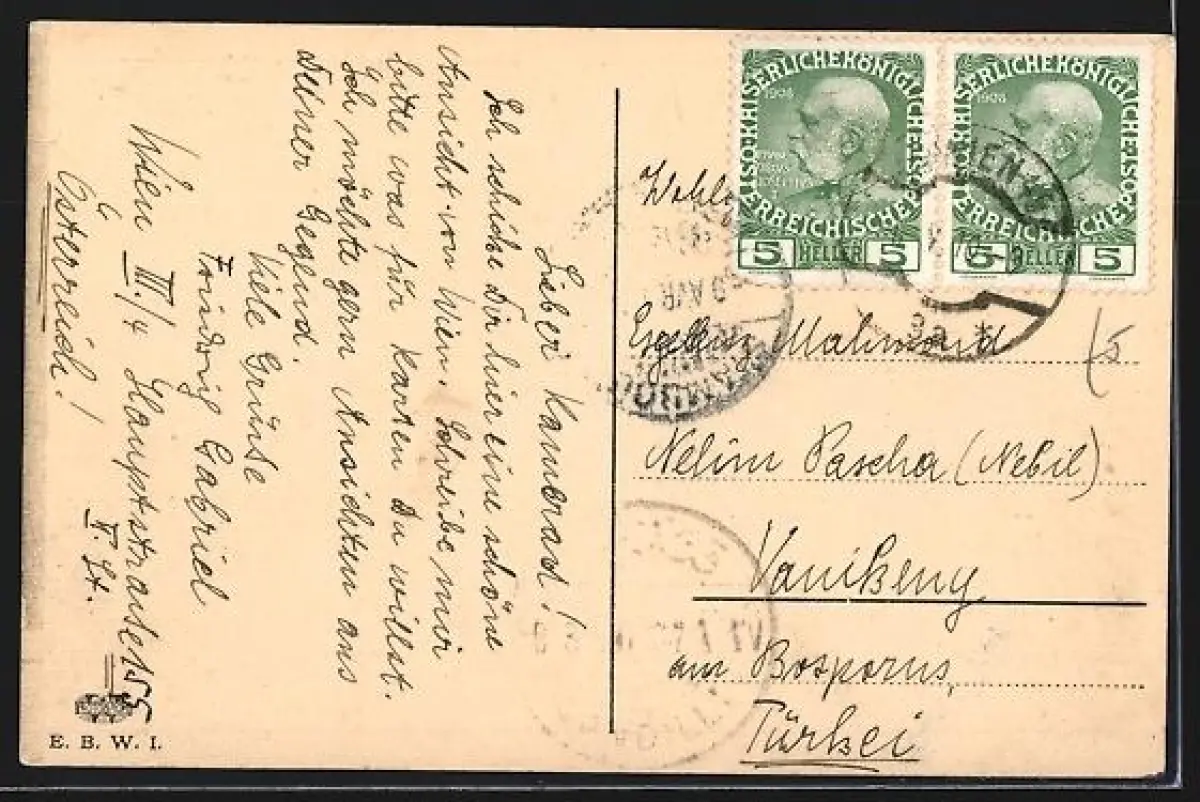 Lieber Kamerad!
Ich schicke Dir hier eine schöne
Ansicht von Wien. Schreibe mir
bitte was für Karten Du willst.
Ich möchte gern Ansichten aus
Deiner Gegend.
Viele Grüße
Gabriel
Wien III./4 Hauptstraße 155
V. St.
Österreich!
E. B. W. I.
KAISERLICHEKÖNIGLICHE ÖSTERREICHISCHE POST
1908
5 HELLER 5
KAISERLICHEKÖNIGLICHE ÖSTERREICHISCHE POST
1908
5 HELLER 5
WIEN
3a *
AVR
Mahmoud
Nelim Pascha (Nebil)
Vanikeuy
am Bosporus,
Türkei